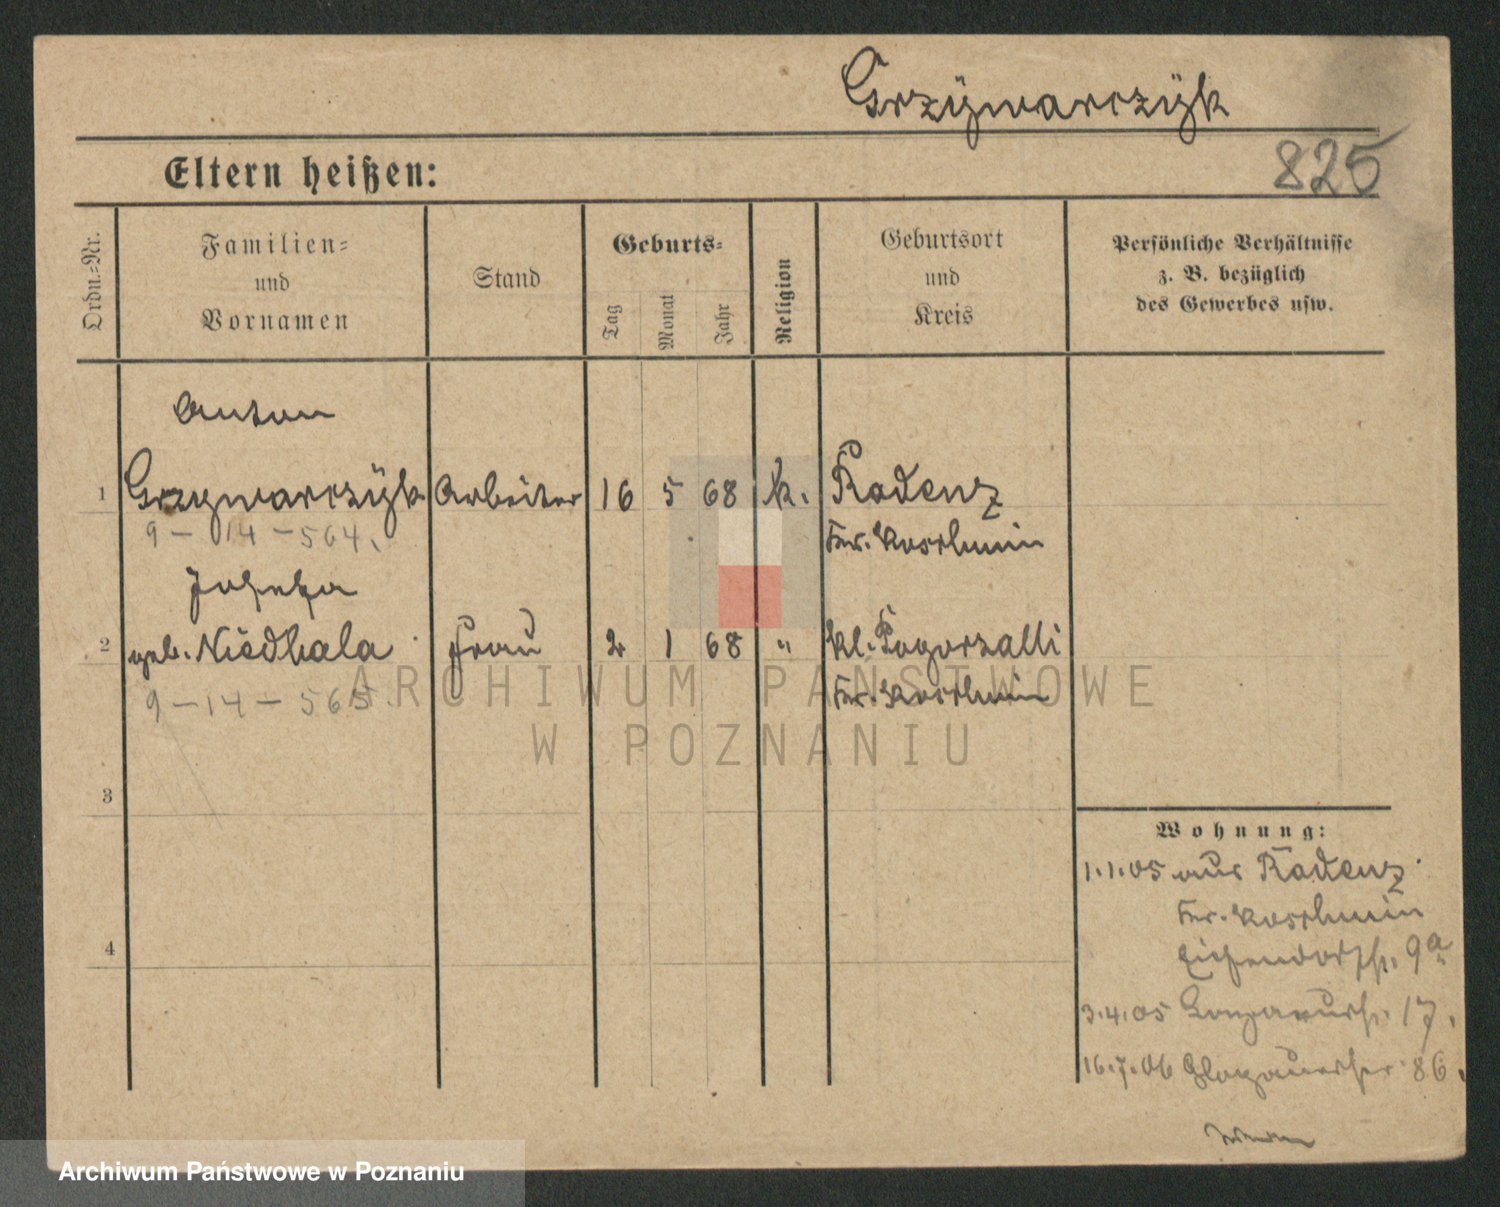 Grzÿwarczÿk
825
Eltern heißen:
Ordn.-Nr.
Familien-
und
Vornamen
Stand
Geburts-
Tag
Monat
Jahr
Religion
Geburtsort
und
Kreis
Persönliche Verhältnisse
z. B. bezüglich
des Gewerbes usw.
Anton
1 Grzywarczÿk Arbeiter 16 5 68 k. Radenz
9 - 14 - 564. Kr. Koschmin
Josefa
2 geb. Niedbala Frau 2 1 68 " kl. Pogorzalki
9 - 14 - 565. Kr. Koschmin
ARCHIWUM PAŃSTWOWE
W POZNANIU
3
Wohnung:
1.1.05 aus Radenz
Kr. Koschmin
4
Eichendorffstr. 9a
3.4.05 17.
16.7.06 Glogauerstr. 86.
Archiwum Państwowe w Poznaniu